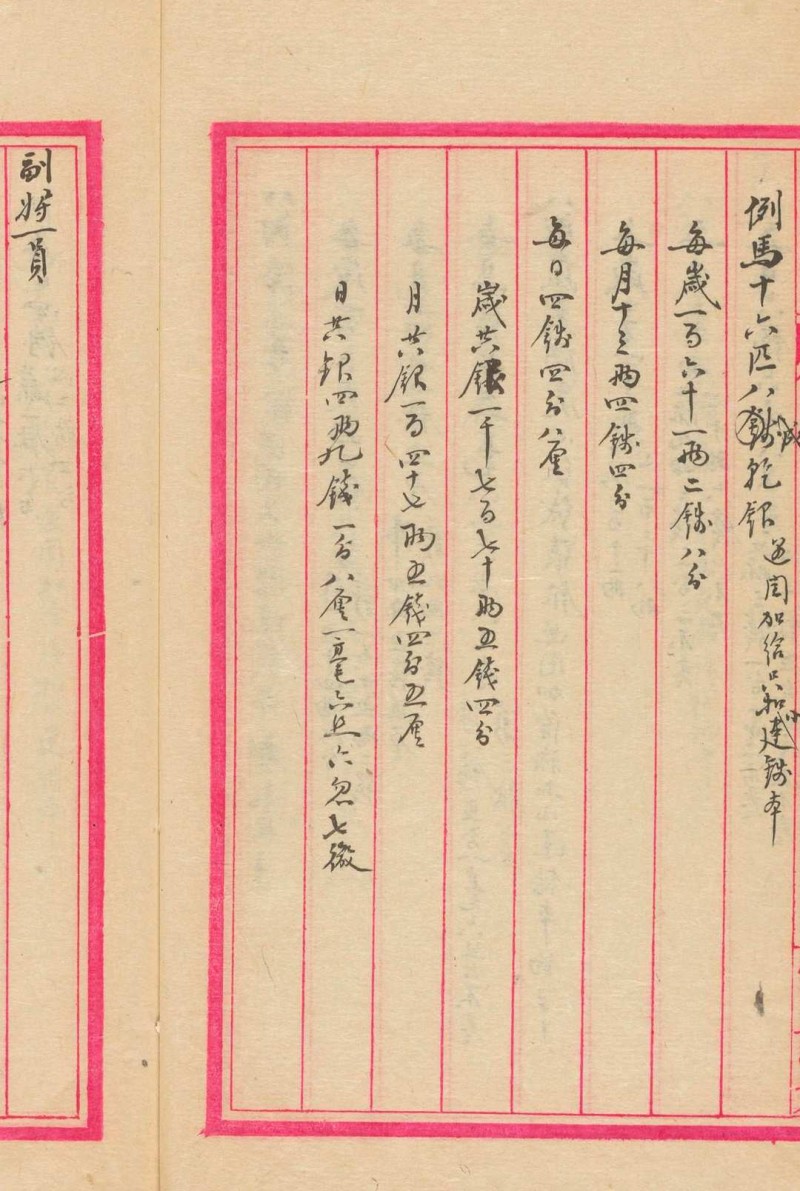 例馬十六匹八錢乾銀遇閏加給只和建錢本
每歲一百六十一两二錢八分
每月十三两四錢四分
每日四錢四分八厘
歲共銀一千七百七十两五錢四分
月共銀一百四十七两五錢四分五厘
日共銀四两九錢一分八厘一毫六丝六忽七微
副将一員